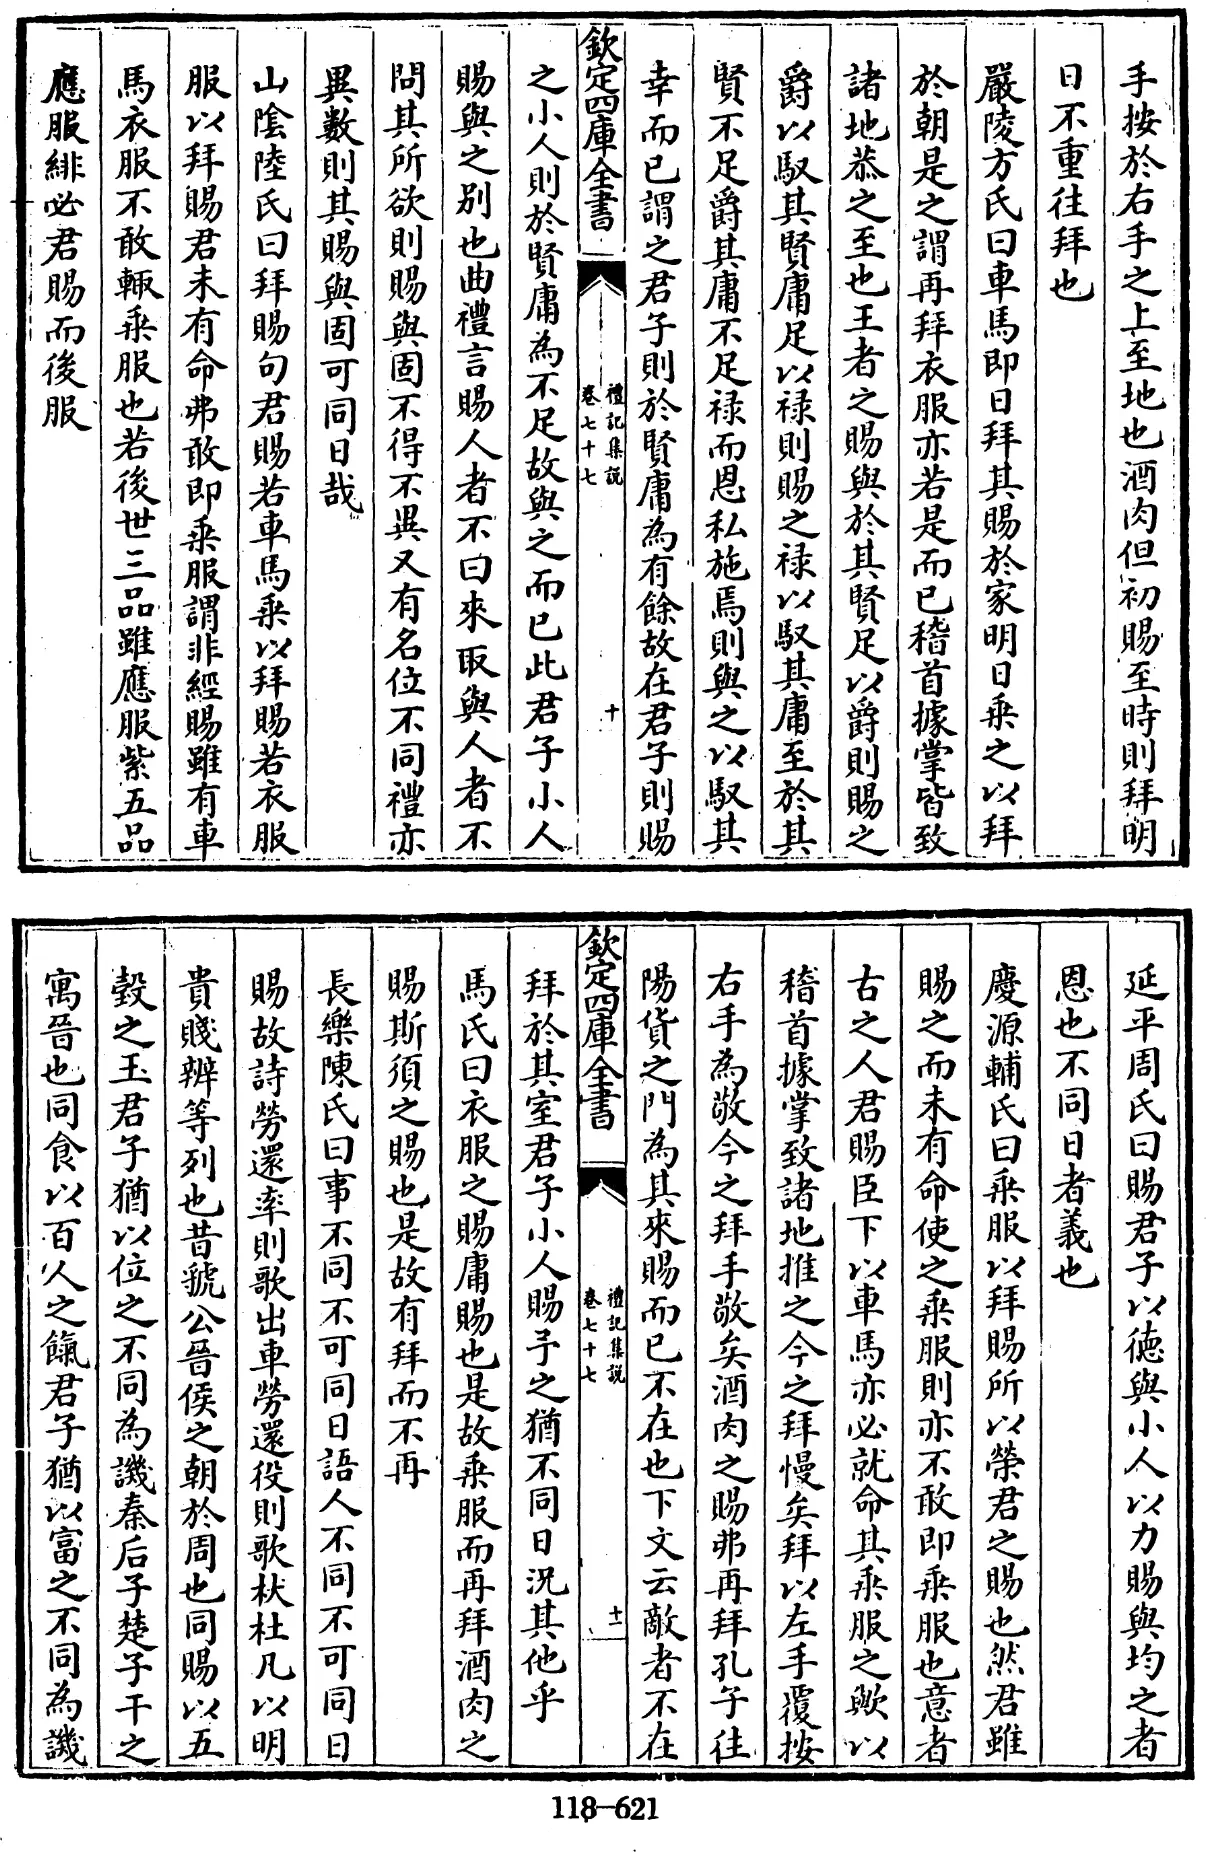 手按於右手之上至地也酒肉但初賜至時則拜明
日不重往拜也
嚴陵方氏曰車馬即日拜其賜於家明日乗之以拜
於朝是之謂再拜衣服亦若是而已稽首據掌皆致
諸地恭之至也王者之賜與於其賢足以爵則賜之
爵以馭其賢庸足以禄則賜之禄以馭其庸至於其
賢不足爵其庸不足禄而恩私施焉則與之以馭其
幸而已謂之君子則於賢庸為有餘故在君子則賜
欽定四庫全書
禮記集說
卷七十七
十
之小人則於賢庸為不足故與之而已此君子小人
賜與之别也曲禮言賜人者不曰來取與人者不
問其所欲則賜與固不得不異又有名位不同禮亦
異數則其賜與固可同日哉
山陰陸氏曰拜賜句君賜若車馬乗以拜賜若衣服
服以拜賜君未有命弗敢即乗服謂非經賜雖有車
馬衣服不敢輙乗服也若後世三品雖應服紫五品
應服緋必君賜而後服
延平周氏曰賜君子以徳與小人以力賜與均之者
恩也不同日者義也
慶源輔氏曰乗服以拜賜所以榮君之賜也然君雖
賜之而未有命使之乗服則亦不敢即乗服也意者
古之人君賜臣下以車馬亦必就命其乗服之歟以
稽首據掌致諸地推之今之拜慢矣拜以左手覆按
右手為敬今之拜手敬矣酒肉之賜弗再拜孔子往
陽貨之門為其來賜而已不在也下文云敵者不在
欽定四庫全書
禮記集說
卷七十七
十一
拜於其室君子小人賜予之猶不同日況其他乎
馬氏曰衣服之賜庸賜也是故乗服而再拜酒肉之
賜斯須之賜也是故有拜而不再
長樂陳氏曰事不同不可同日語人不同不可同日
賜故詩勞還率則歌出車勞還役則歌杕杜凡以明
貴賤辨等列也昔虢公晉侯之朝於周也同賜以五
瑴之玉君子猶以位之不同為譏秦后子楚子干之
寓晉也同食以百人之餼君子猶以富之不同為譏
118-621